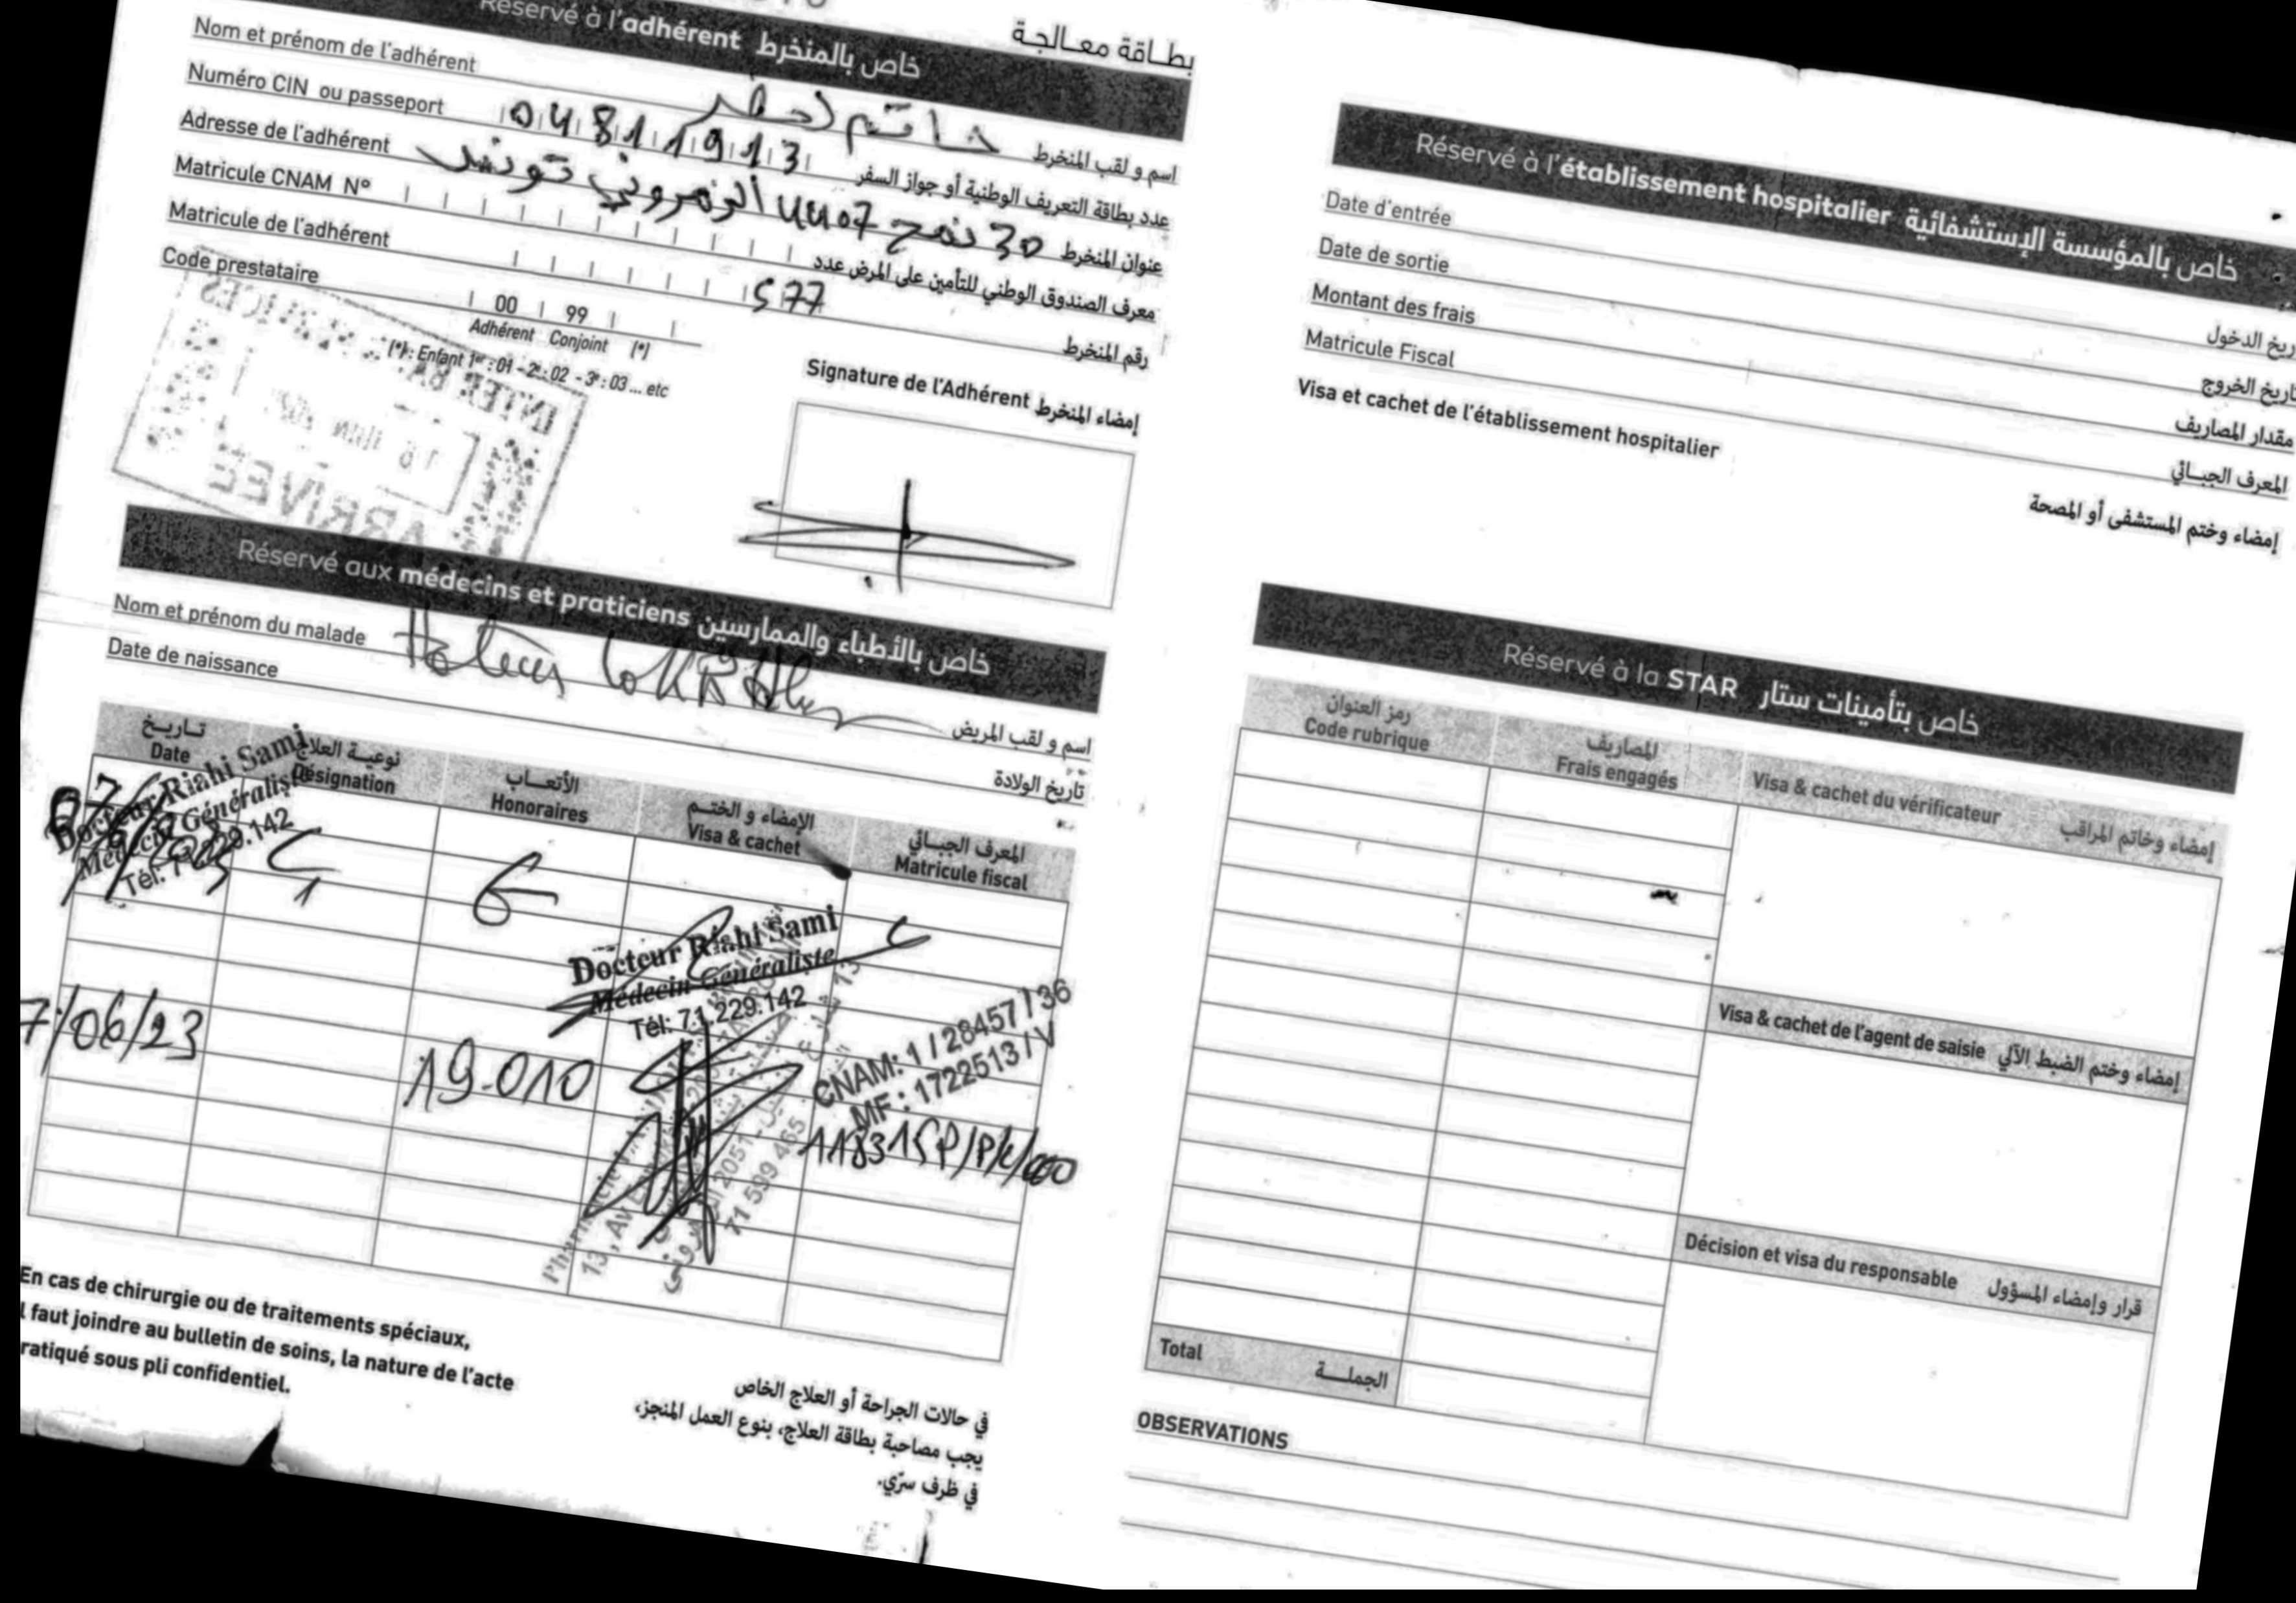 بطـاقة معـالجـة
Réservé à l'adhérent خاص بالمنخرط
Nom et prénom de l'adhérent خاتم لحظر اسم و لقب المنخرط
Numéro CIN ou passeport 04811913 عدد بطاقة التعريف الوطنية أو جواز السفر
Adresse de l'adhérent 30 نهج 4407 الزهروني تونس عنوان المنخرط
Matricule CNAM N° معرف الصندوق الوطني للتأمين على المرض عدد
Matricule de l'adhérent 577 رقم المنخرط
Code prestataire
00 99
Adhérent Conjoint (*)
(*) : Enfant 1er : 01 - 2e : 02 - 3e : 03 ... etc
ARRIVEE
Signature de l'Adhérent إمضاء المنخرط
Réservé aux médecins et praticiens خاص بالأطباء والممارسين
Nom et prénom du malade اسم و لقب المريض
Date de naissance تاريخ الولادة
تـاريـخ نوعيـة العلاج الأتعـاب الإمضاء و الختـم المعرف الجبـائي
Date Désignation Honoraires Visa & cachet Matricule fiscal
Docteur Riahi Sami
Médecin Généraliste
Docteur Riahi Sami
Médecin Généraliste
Tél: 71.229.142
7/06/23 19.010
CNAM: 1 / 28457 / 36
MF : 1722513 / V
71 599 465
En cas de chirurgie ou de traitements spéciaux,
l faut joindre au bulletin de soins, la nature de l'acte
ratiqué sous pli confidentiel.
في حالات الجراحة أو العلاج الخاص
يجب مصاحبة بطاقة العلاج، بنوع العمل المنجز،
في ظرف سرّي.
Réservé à l'établissement hospitalier خاص بالمؤسسة الإستشفائية
Date d'entrée ريخ الدخول
Date de sortie تاريخ الخروج
Montant des frais مقدار المصاريف
Matricule Fiscal المعرف الجبـائي
Visa et cachet de l'établissement hospitalier إمضاء وختم المستشفى أو المصحة
Réservé à la STAR خاص بتأمينات ستار
رمز العنوان المصاريف
Code rubrique Frais engagés Visa & cachet du vérificateur إمضاء وخاتم المراقب
Visa & cachet de l'agent de saisie إمضاء وختم الضبط الآلي
Décision et visa du responsable قرار وإمضاء المسؤول
Total الجملـــة
OBSERVATIONS